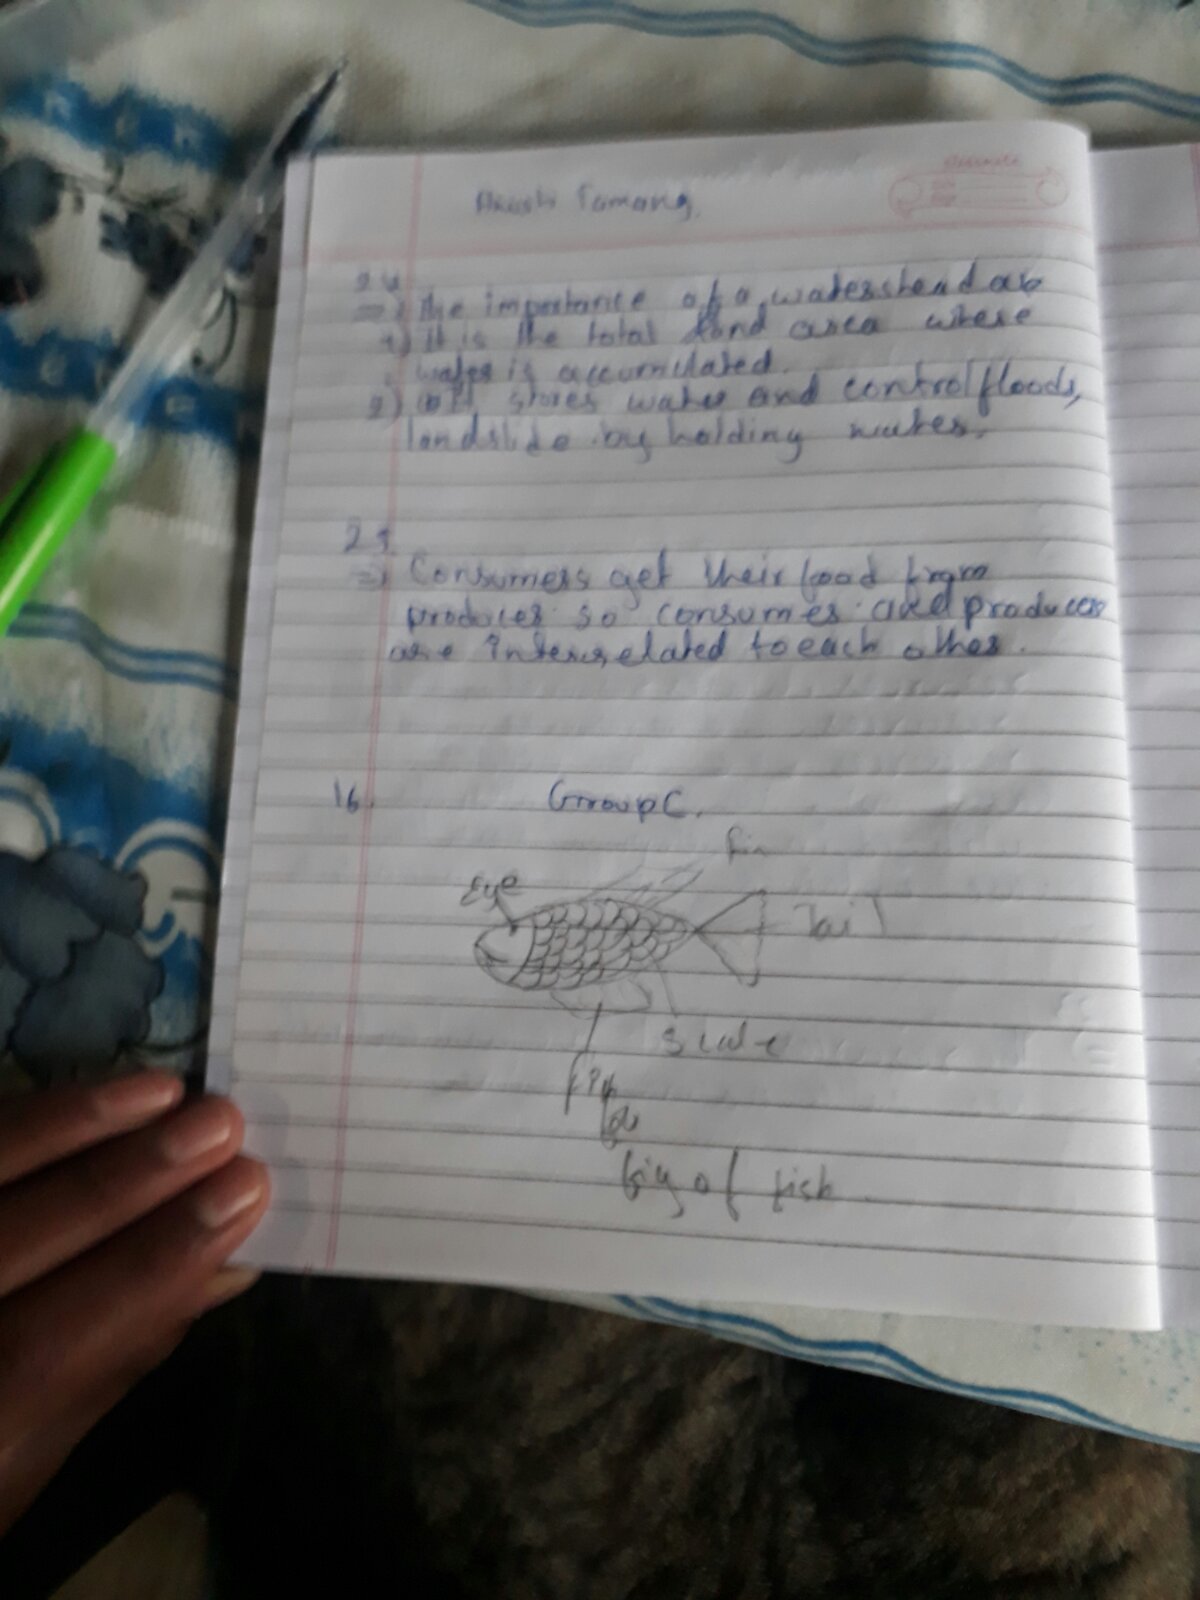 Akash Tamang.
24
=> The importance of a watershed are
1) It is the total land area where
water is accumulated.
2) It stores water and control floods,
landslide by holding water.
21
=> Consumers get their food from
producer so consumer and producer
are interrelated to each other.
16. Group C.
fin
Eye
Tail
scale
fin
fig of fish